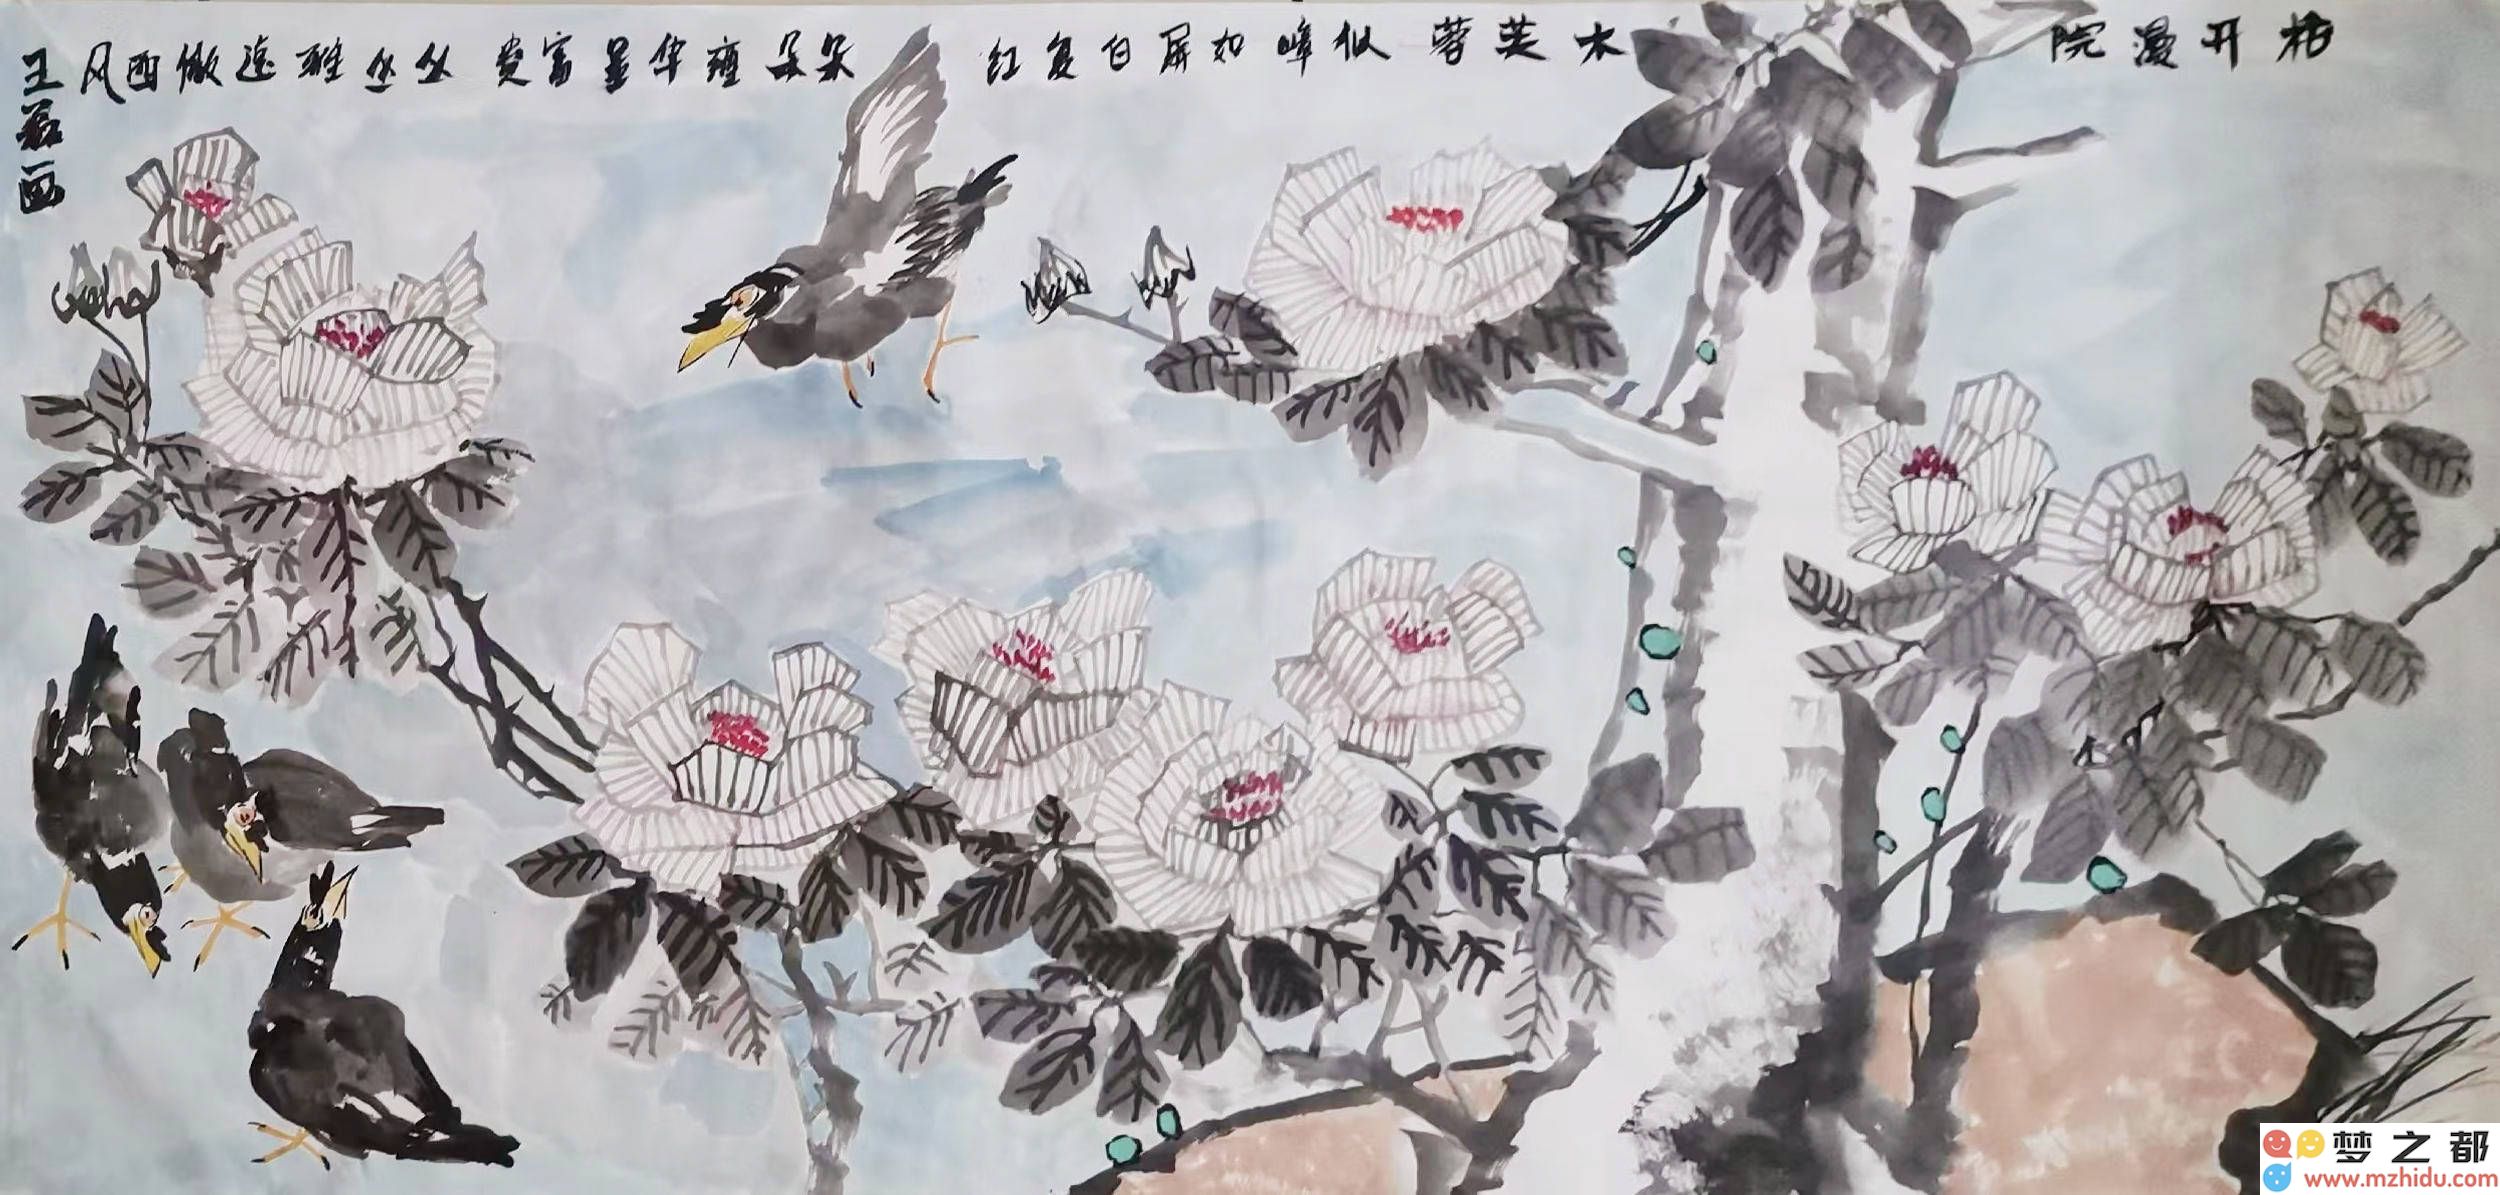 开漫院木芙蓉
似嶂如屏白复红
朵朵雍华显富贵
丛丛雅逸傲西风
王画
梦之都
www.mzhidu.com